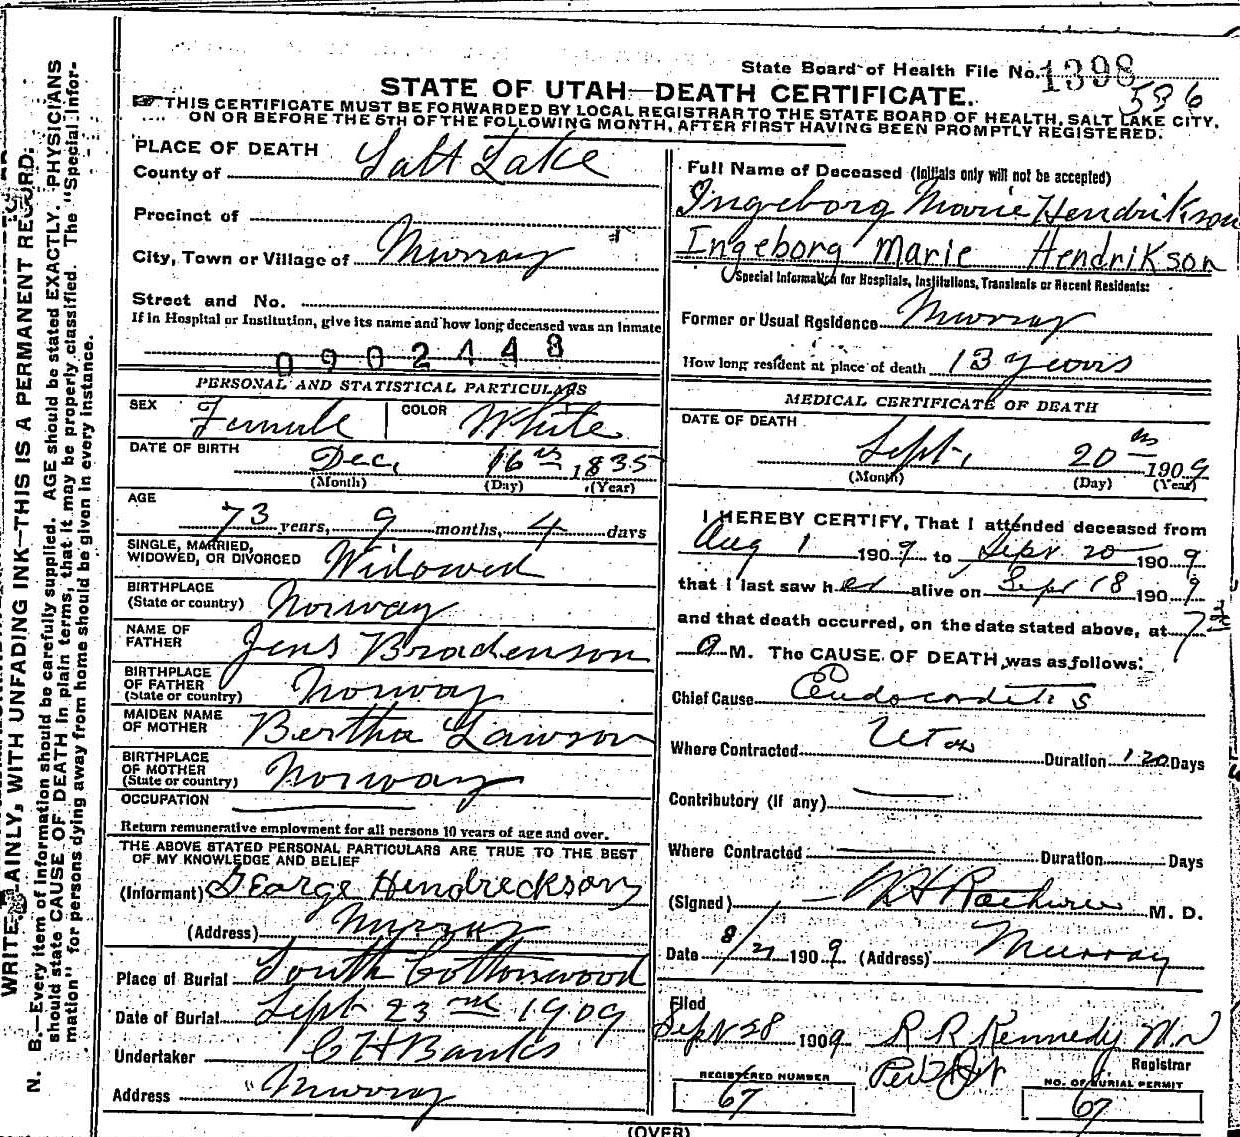 State Board of Health File No. 1398
536
STATE OF UTAH—DEATH CERTIFICATE.
THIS CERTIFICATE MUST BE FORWARDED BY LOCAL REGISTRAR TO THE STATE BOARD OF HEALTH, SALT LAKE CITY,
ON OR BEFORE THE 5TH OF THE FOLLOWING MONTH, AFTER FIRST HAVING BEEN PROMPTLY REGISTERED.
PLACE OF DEATH
County of Salt Lake
Precinct of
City, Town or Village of Murray
Street and No.
If in Hospital or Institution, give its name and how long deceased was an inmate
0902448
PERSONAL AND STATISTICAL PARTICULARS
SEX Female COLOR White
DATE OF BIRTH Dec, 16th 1835
(Month) (Day) (Year)
AGE
73 years, 9 months, 4 days
SINGLE, MARRIED,
WIDOWED, OR DIVORCED Widowed
BIRTHPLACE
(State or country) Norway
NAME OF
FATHER Jens Bradenson
BIRTHPLACE
OF FATHER
(State or country) Norway
MAIDEN NAME
OF MOTHER Bertha Lawson
BIRTHPLACE
OF MOTHER
(State or country) Norway
OCCUPATION
Return remunerative employment for all persons 10 years of age and over.
THE ABOVE STATED PERSONAL PARTICULARS ARE TRUE TO THE BEST
OF MY KNOWLEDGE AND BELIEF
(Informant) George Hendreckson
(Address) Murray
Place of Burial South Cottonwood
Date of Burial Sept 23rd 1909
Undertaker C H Banks
Address Murray
Full Name of Deceased (Initials only will not be accepted)
Ingeborg Marie Hendrikson
Ingeborg Marie Hendrikson
Special Information for Hospitals, Institutions, Transients or Recent Residents:
Former or Usual Residence Murray
How long resident at place of death 13 years
MEDICAL CERTIFICATE OF DEATH
DATE OF DEATH
Sept, 20th 1909
(Month) (Day) (Year)
I HEREBY CERTIFY, That I attended deceased from
Aug 1 1909 to Sept 20 1909
that I last saw her alive on Sept 18 1909
and that death occurred, on the date stated above, at 7
A M. The CAUSE OF DEATH was as follows:
Chief Cause Endocarditis
Where Contracted Utah Duration 120 Days
Contributory (if any)
Where Contracted Duration Days
(Signed) M. D.
Date 8/21 1909 (Address) Murray
Filed
Sept 28 1909 R R Kennedy M D
Registrar
REGISTERED NUMBER
67
NO. OF BURIAL PERMIT
67
(OVER)
WRITE PLAINLY, WITH UNFADING INK—THIS IS A PERMANENT RECORD.
N. B.—Every item of information should be carefully supplied. AGE should be stated EXACTLY. PHYSICIANS
should state CAUSE OF DEATH in plain terms, that it may be properly classified. The "Special Infor-
mation" for persons dying away from home should be given in every instance.